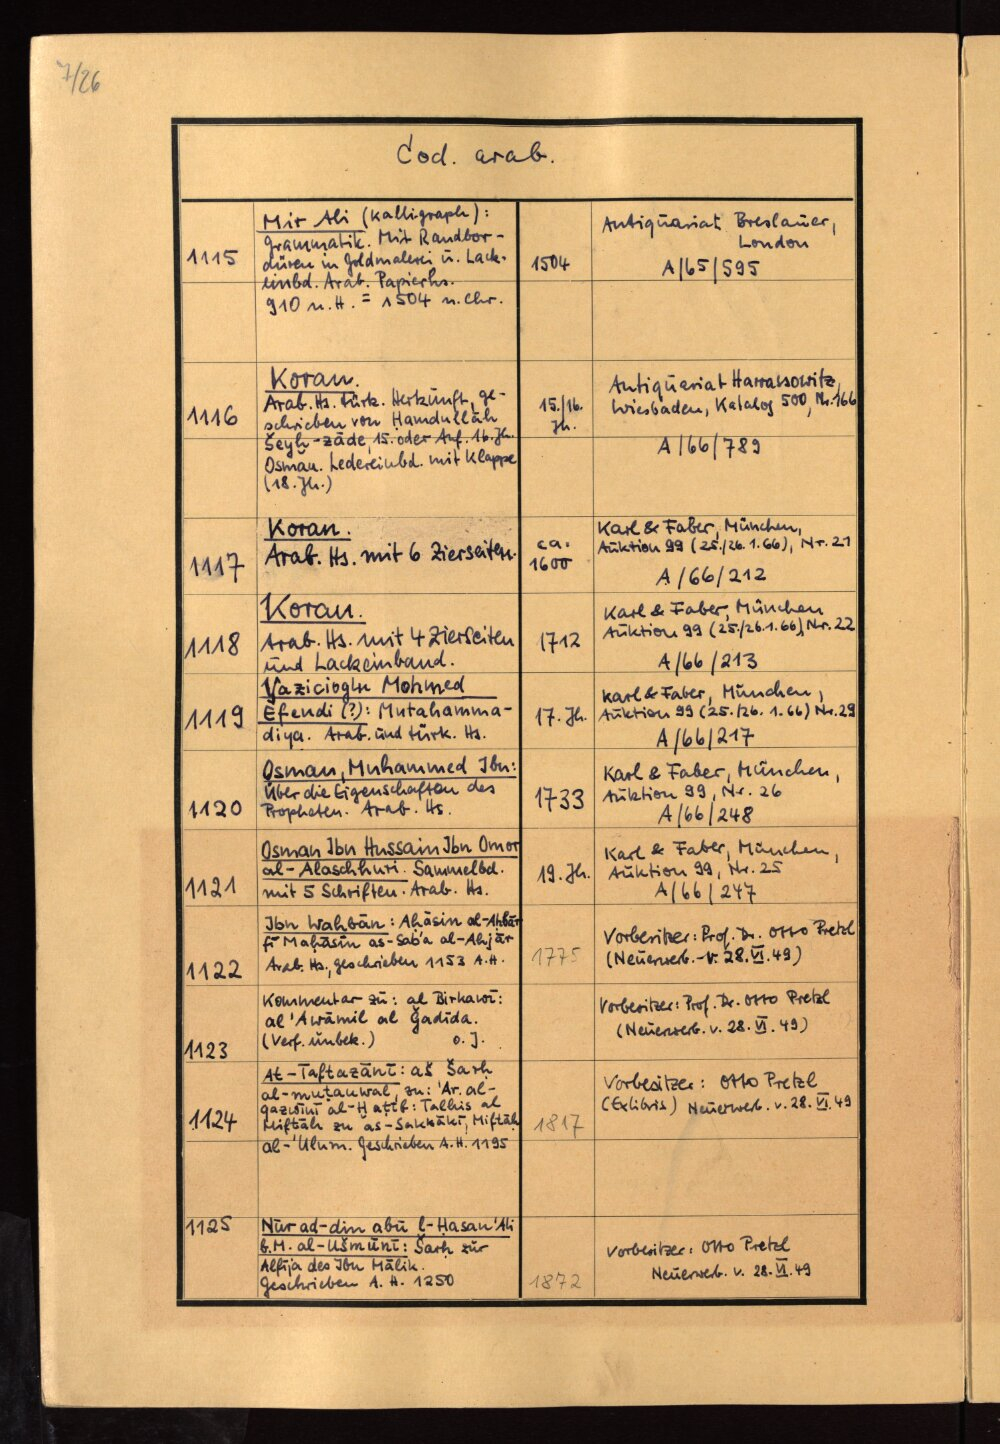 7/26
Cod. arab.
1115
Mir Ali (Kalligraph):
Grammatik. Mit Randbor-
düren in Goldmalerei u. Lack-
einbd. Arab. Papierhs.
910 n. H. = 1504 n. Chr.
1504
Antiquariat Breslauer,
London
A/65/595
1116
Koran.
Arab. Hs. türk. Herkunft, ge-
schrieben von Hamdullāh
Šeyḫ-zāde, 15. oder Anf. 16. Jh.
Osman. Ledereinbd. mit Klappe
(18. Jh.)
15./16.
Jh.
Antiquariat Harrassowitz,
Wiesbaden, Katalog 500, Nr. 166
A/66/789
1117
Koran.
Arab. Hs. mit 6 Zierseiten.
ca.
1600
Karl & Faber, München,
Auktion 99 (25./26. 1. 66), Nr. 21
A/66/212
1118
Koran.
Arab. Hs. mit 4 Zierseiten
und Lackeinband.
1712
Karl & Faber, München
Auktion 99 (25./26. 1. 66), Nr. 22
A/66/213
1119
Yazicioglu Mohmed
Efendi (?): Mutahamma-
diya. Arab. und türk. Hs.
17. Jh.
Karl & Faber, München,
Auktion 99 (25./26. 1. 66) Nr. 29
A/66/217
1120
Osman, Muhammed Ibn:
Über die Eigenschaften des
Propheten. Arab. Hs.
1733
Karl & Faber, München,
Auktion 99, Nr. 26
A/66/248
1121
Osman Ibn Hussain Ibn Omor
al-Alaschhuri. Sammelbd.
mit 5 Schriften. Arab. Hs.
19. Jh.
Karl & Faber, München,
Auktion 99, Nr. 25
A/66/247
1122
Ibn Wahbān: Aḥāsin al-Aḫbār
fī Maḥāsin as-Sab'a al-Aḫjār
Arab. Hs., geschrieben 1153 A.H.
1775
Vorbesitzer: Prof. Dr. Otto Pretzl
(Neuerwerb. v. 28. VI. 49)
1123
Kommentar zu: al Birkawī:
al 'Awāmil al Ǧadīda.
(Verf. unbek.) o. J.
Vorbesitzer: Prof. Dr. Otto Pretzl
(Neuerwerb. v. 28. VI. 49)
1124
At-Taftazānī: aš Šarḥ
al-muṭauwal, zu: 'Ar. al-
qazwīnī al-Ḫaṭīb: Talḫis al
Miftāḥ zu as-Sakkākī, Miftāḥ
al-'Ulum. Geschrieben A.H. 1195
1817
Vorbesitzer: Otto Pretzl
(Exlibris) Neuerwerb. v. 28. VI. 49
1125
Nūr ad-din abū l-Ḥasan 'Ali
b. M. al-Ušmūnī: Šarḥ zur
Alfija des Ibn Mālik.
Geschrieben A. H. 1250
1872
Vorbesitzer: Otto Pretzl
Neuerwerb. v. 28. VI. 49